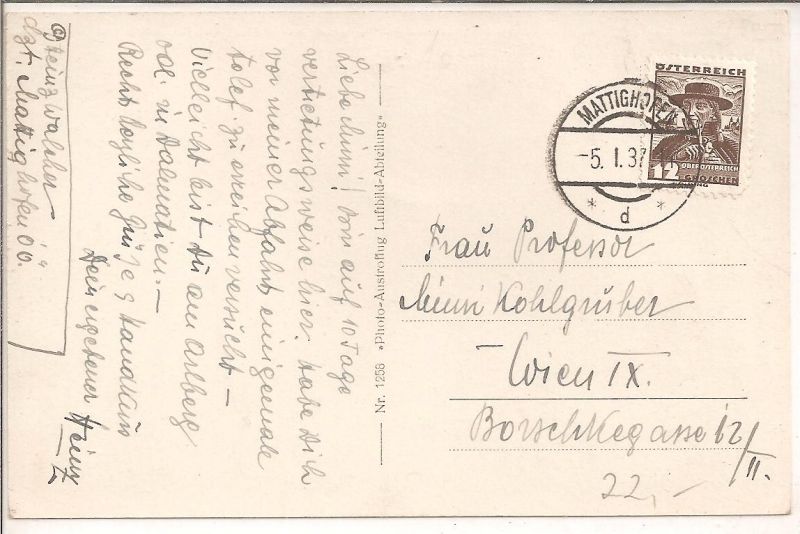 Liebe Mimi! Bin auf 10 Tage
vertretungsweise hier. Habe Dich
vor meiner Abfahrt einigemale
telef. zu erreichen versucht –
Vielleicht bist Du am Arlberg
od. in Dalmatien. –
Recht herzliche Grüße & Handkuss
Dein ergebener Heinz
Heinz Walcher
Mattighofen O.Ö.
Nr. 1268 "Photo-Austroflug Luftbild-Abteilung"
ÖSTERREICH
OBERÖSTERREICH
12 GROSCHEN
MATTIGHOFEN
-5. I. 37
* d *
Frau Professor
Mimi Kohlgruber
Wien IX.
Borschkegasse 12/II.
22,-